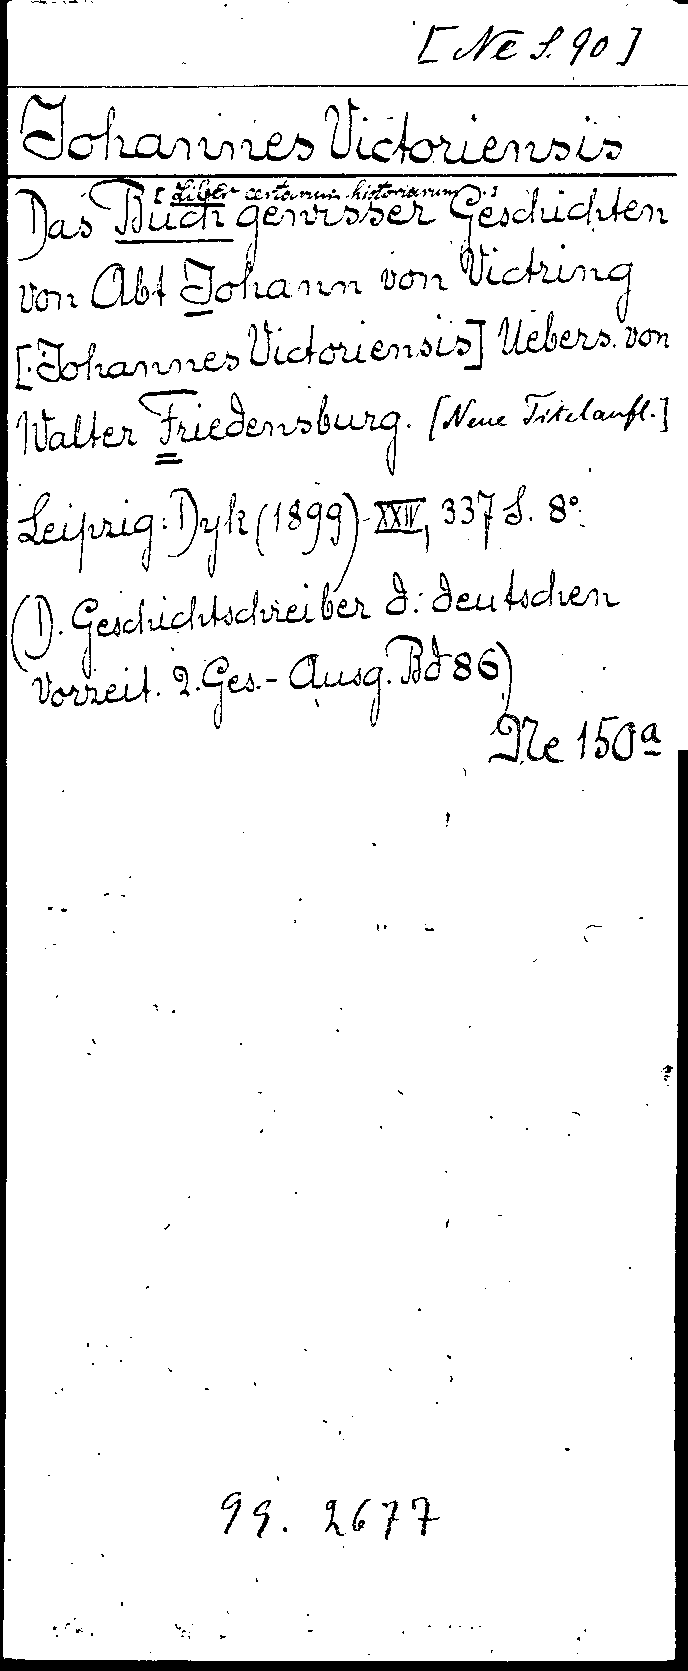 [Ne S. 90]
Johannes Victoriensis
[Liber certarum historiarum.]
Das Buch gewisser Geschichten
von Abt Johann von Victring
[:Johannes Victoriensis] Uebers. von
Walter Friedensburg. [Neue Titelaufl.]
Leipzig: Dyk (1899) XXIV, 337 S. 8°.
(D. Geschichtschreiber d. deutschen
Vorzeit. 2. Ges.-Ausg. Bd 86)
Ne 150a
99. 2677